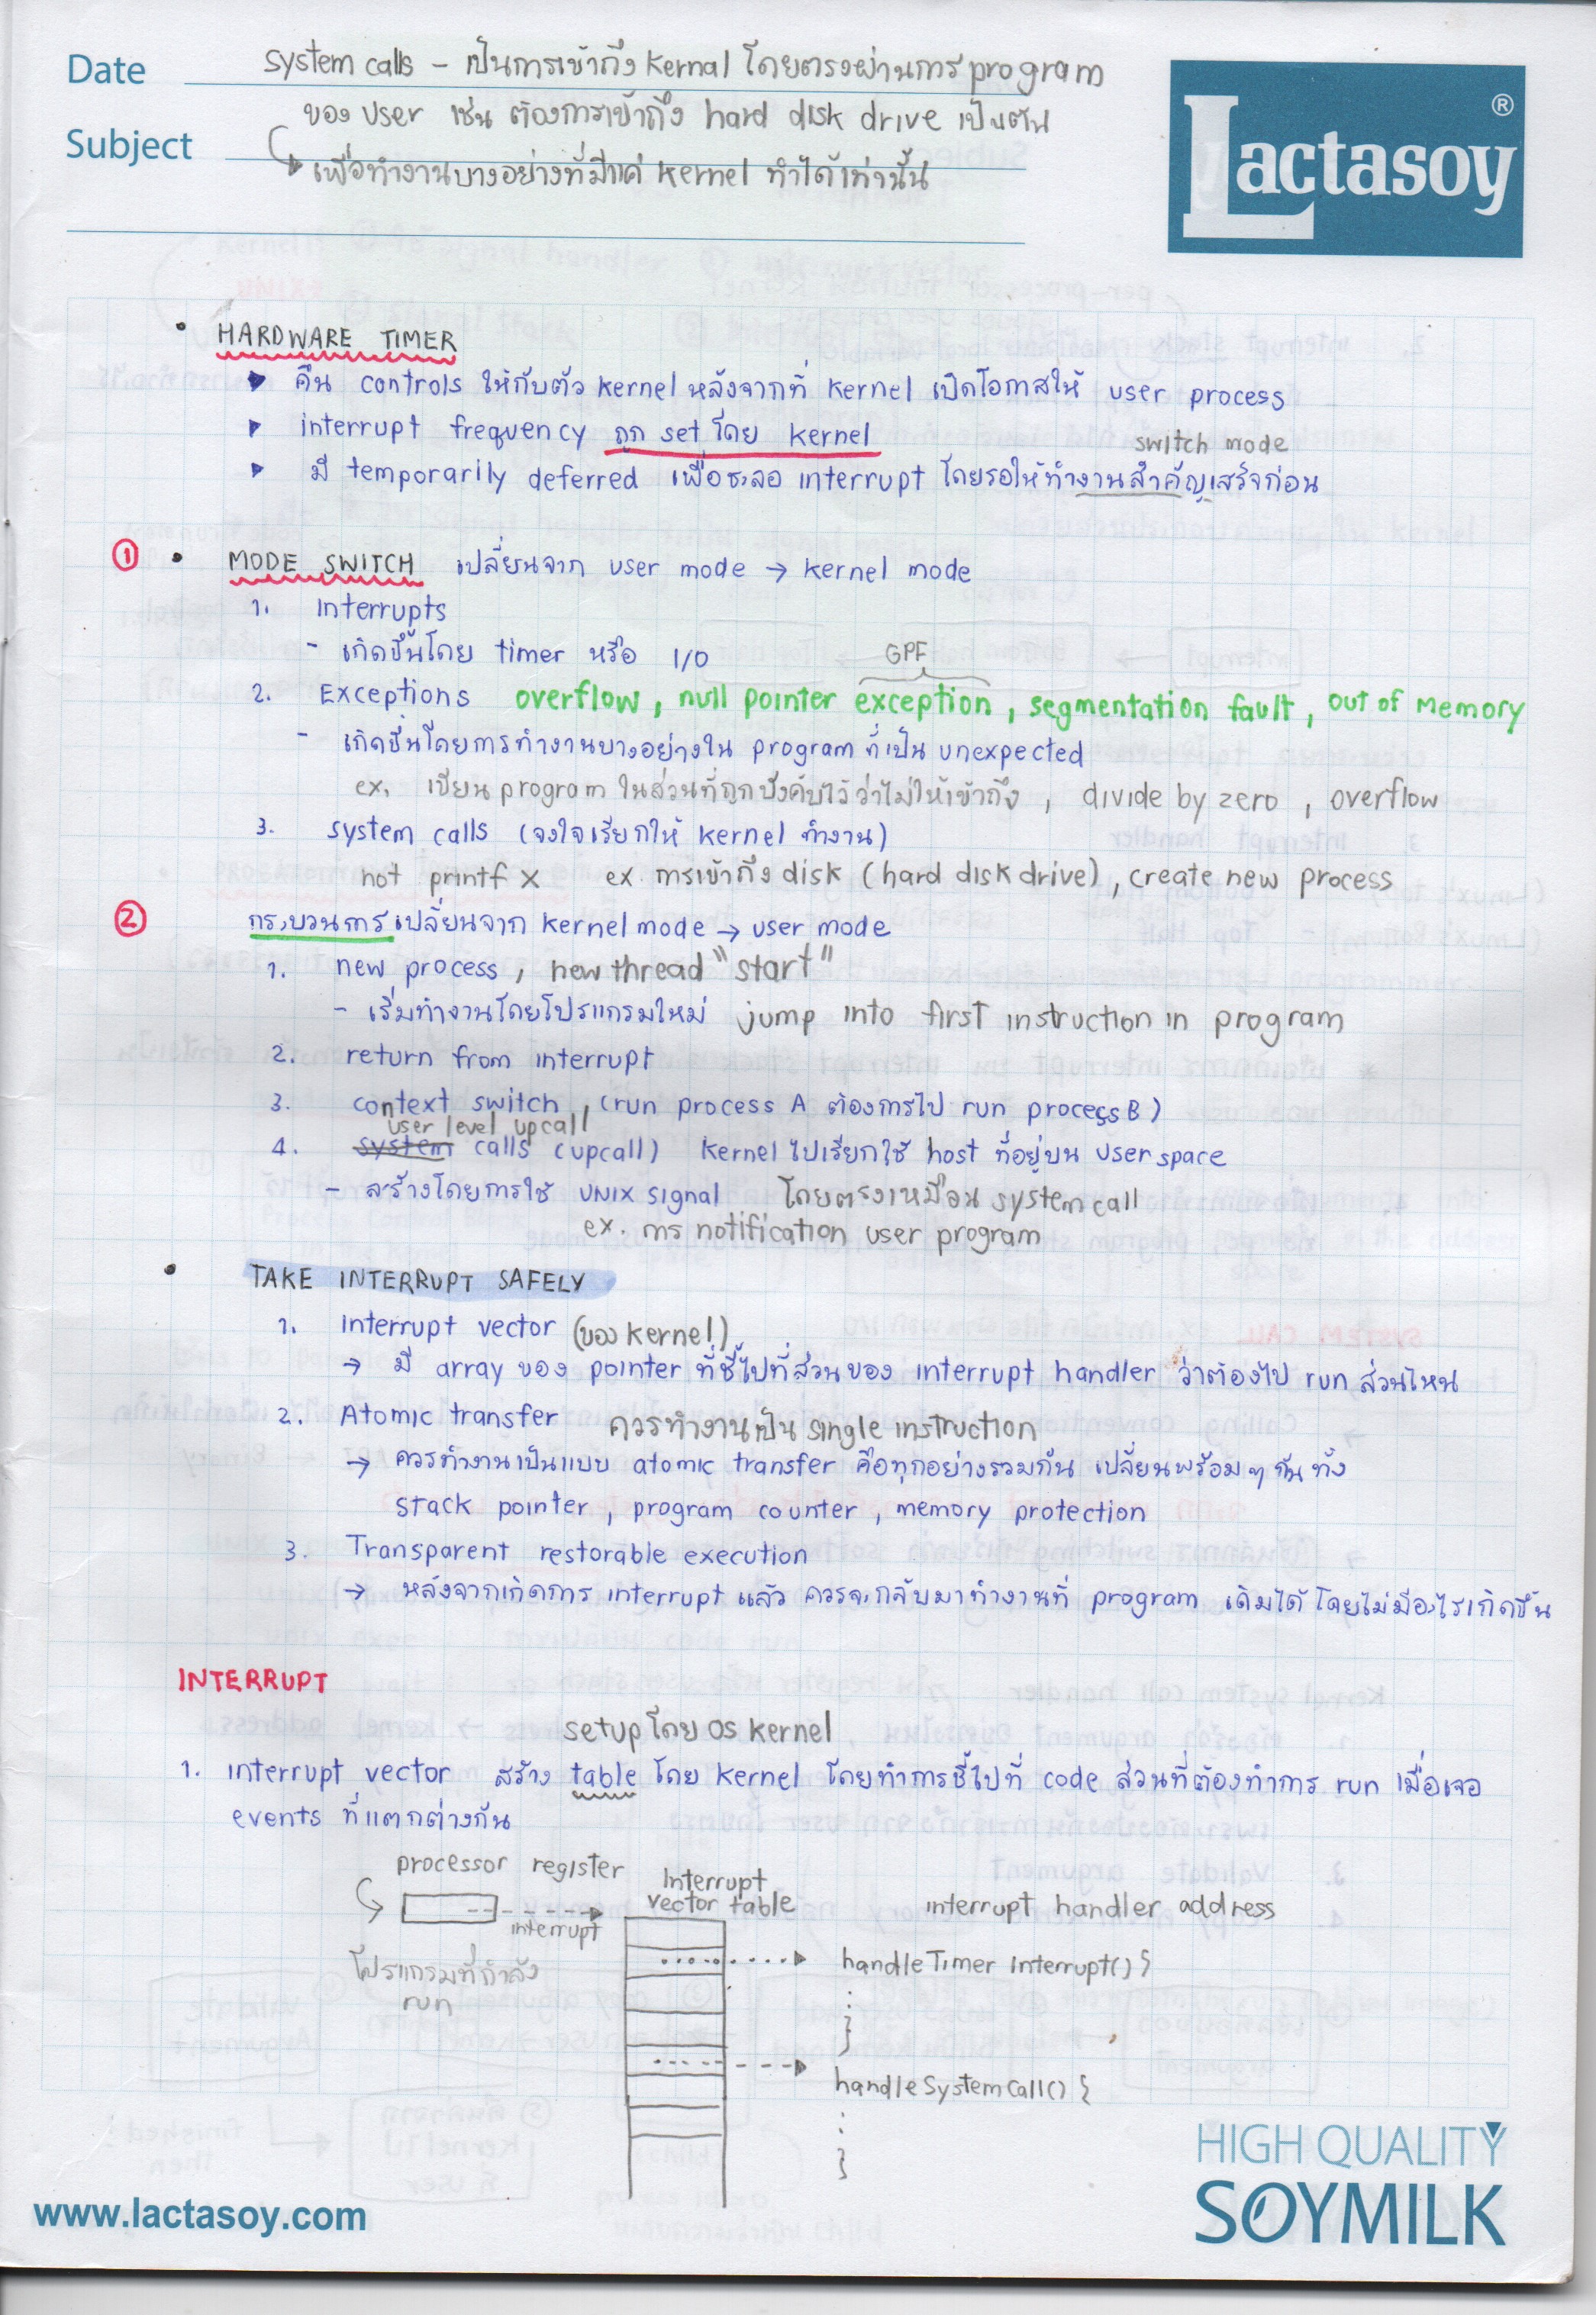 Date
system calls - เป็นการเข้าถึง kernal โดยตรงผ่านการ program
ของ user เช่น ต้องการเข้าถึง hard disk drive เป็นต้น
Subject
เพื่อทำงานบางอย่างที่มีแค่ kernel ทำได้เท่านั้น
Lactasoy ®
• HARDWARE TIMER
▶ คืน controls ให้กับตัว kernel หลังจากที่ kernel เปิดโอกาสให้ user process
▶ interrupt frequency ถูก set โดย kernel
switch mode
▶ มี temporarily deferred เพื่อชะลอ interrupt โดยรอให้ทำงานสำคัญเสร็จก่อน
① • MODE SWITCH เปลี่ยนจาก user mode → kernel mode
1. Interrupts
- เกิดขึ้นโดย timer หรือ I/O
GPF
2. Exceptions overflow, null pointer exception, segmentation fault, out of memory
- เกิดขึ้นโดยการทำงานบางอย่างใน program ที่เป็น unexpected
ex. เขียน program ในส่วนที่ถูกบังคับไว้ว่าไม่ให้เข้าถึง, divide by zero, overflow
3. system calls (จงใจเรียกให้ kernel ทำงาน)
not printf x ex. การเข้าถึง disk (hard disk drive), create new process
② กระบวนการเปลี่ยนจาก kernel mode → user mode
1. new process, new thread "start"
- เริ่มทำงานโดยโปรแกรมใหม่ jump into first instruction in program
2. return from interrupt
3. context switch, (run process A ต้องการไป run process B)
user level upcall
4. system calls (upcall) kernel ไปเรียกใช้ host ที่อยู่บน user space
- สร้างโดยการใช้ UNIX signal โดยตรงเหมือน system call
ex. การ notification user program
• TAKE INTERRUPT SAFELY
1. Interrupt vector (ของ kernel)
→ มี array ของ pointer ที่ชี้ไปที่ส่วนของ interrupt handler ว่าต้องไป run ส่วนไหน
2. Atomic transfer ควรทำงานเป็น single instruction
→ ควรทำงานเป็นแบบ atomic transfer คือทุกอย่างรวมกัน เปลี่ยนพร้อมๆ กัน ทั้ง
stack pointer, program counter, memory protection
3. Transparent restorable execution
→ หลังจากเกิดการ interrupt แล้ว ควรจะกลับมาทำงานที่ program เดิมได้ โดยไม่มีอะไรเกิดขึ้น
INTERRUPT
setup โดย OS kernel
1. interrupt vector สร้าง table โดย kernel โดยทำการชี้ไปที่ code ส่วนที่ต้องทำการ run เมื่อเจอ
events ที่แตกต่างกัน
processor register
Interrupt
vector table
interrupt handler address
interrupt
handleTimer Interrupt() {
โปรแกรมที่กำลัง
run
:
}
handleSystemCall() {
:
}
HIGH QUALITY
SOYMILK
www.lactasoy.com